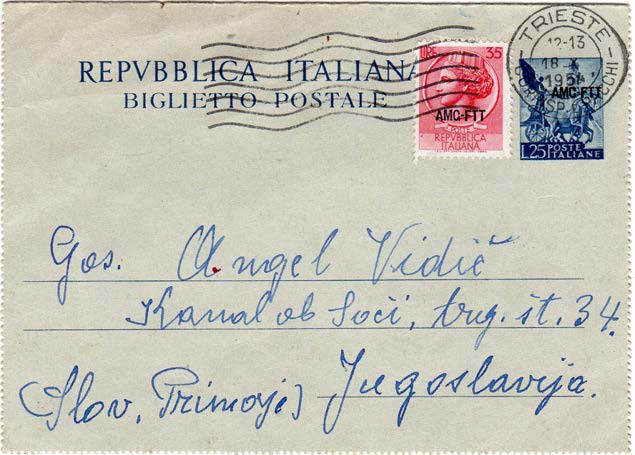 REPVBBLICA ITALIANA
BIGLIETTO POSTALE
LIRE 35
AMC-FTT
POSTE
REPVBBLICA
ITALIANA
TRIESTE
12-13
18
1954
AMC-FTT
L.25 POSTE
ITALIANE
Gos. Angel Vidič
Kanal ob Soči, trg. št. 34.
(Slov. Primorje) Jugoslavija.